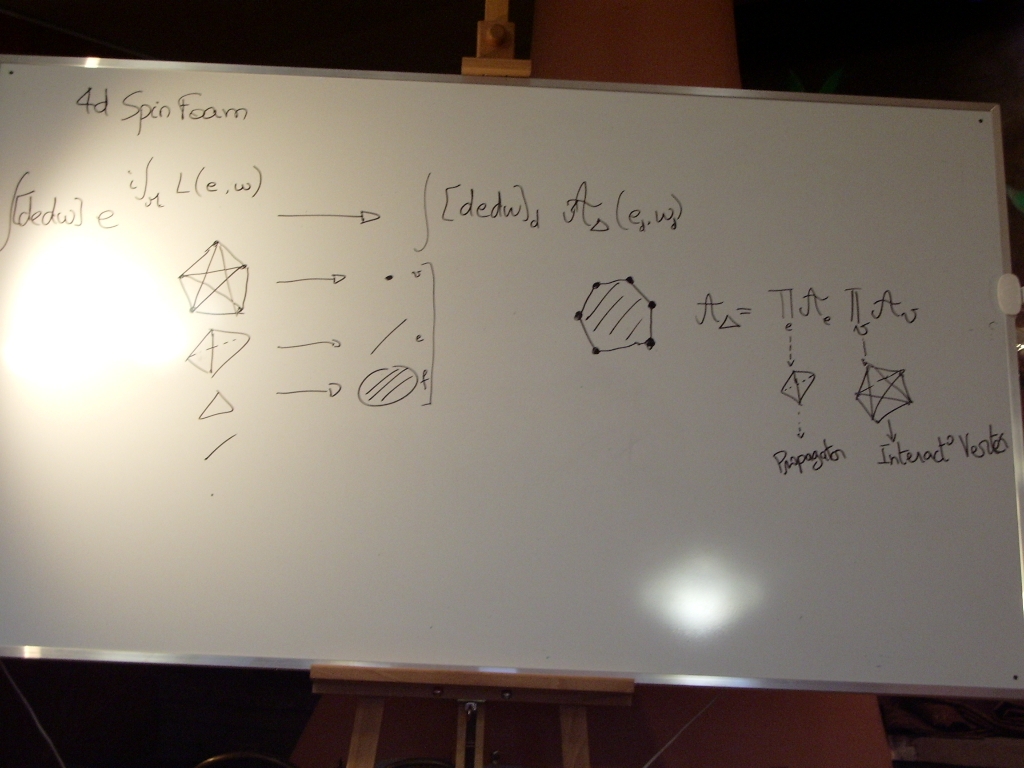 4d Spin Foam
∫[dedw] e^{i∫_M L(e,w)} → ∫[dedw]_d A_Δ(e_d, w_d)
→ · v
→ e
→ f
A_Δ = ∏_e A_e ∏_v A_v
Propagator
Interact° Vertex